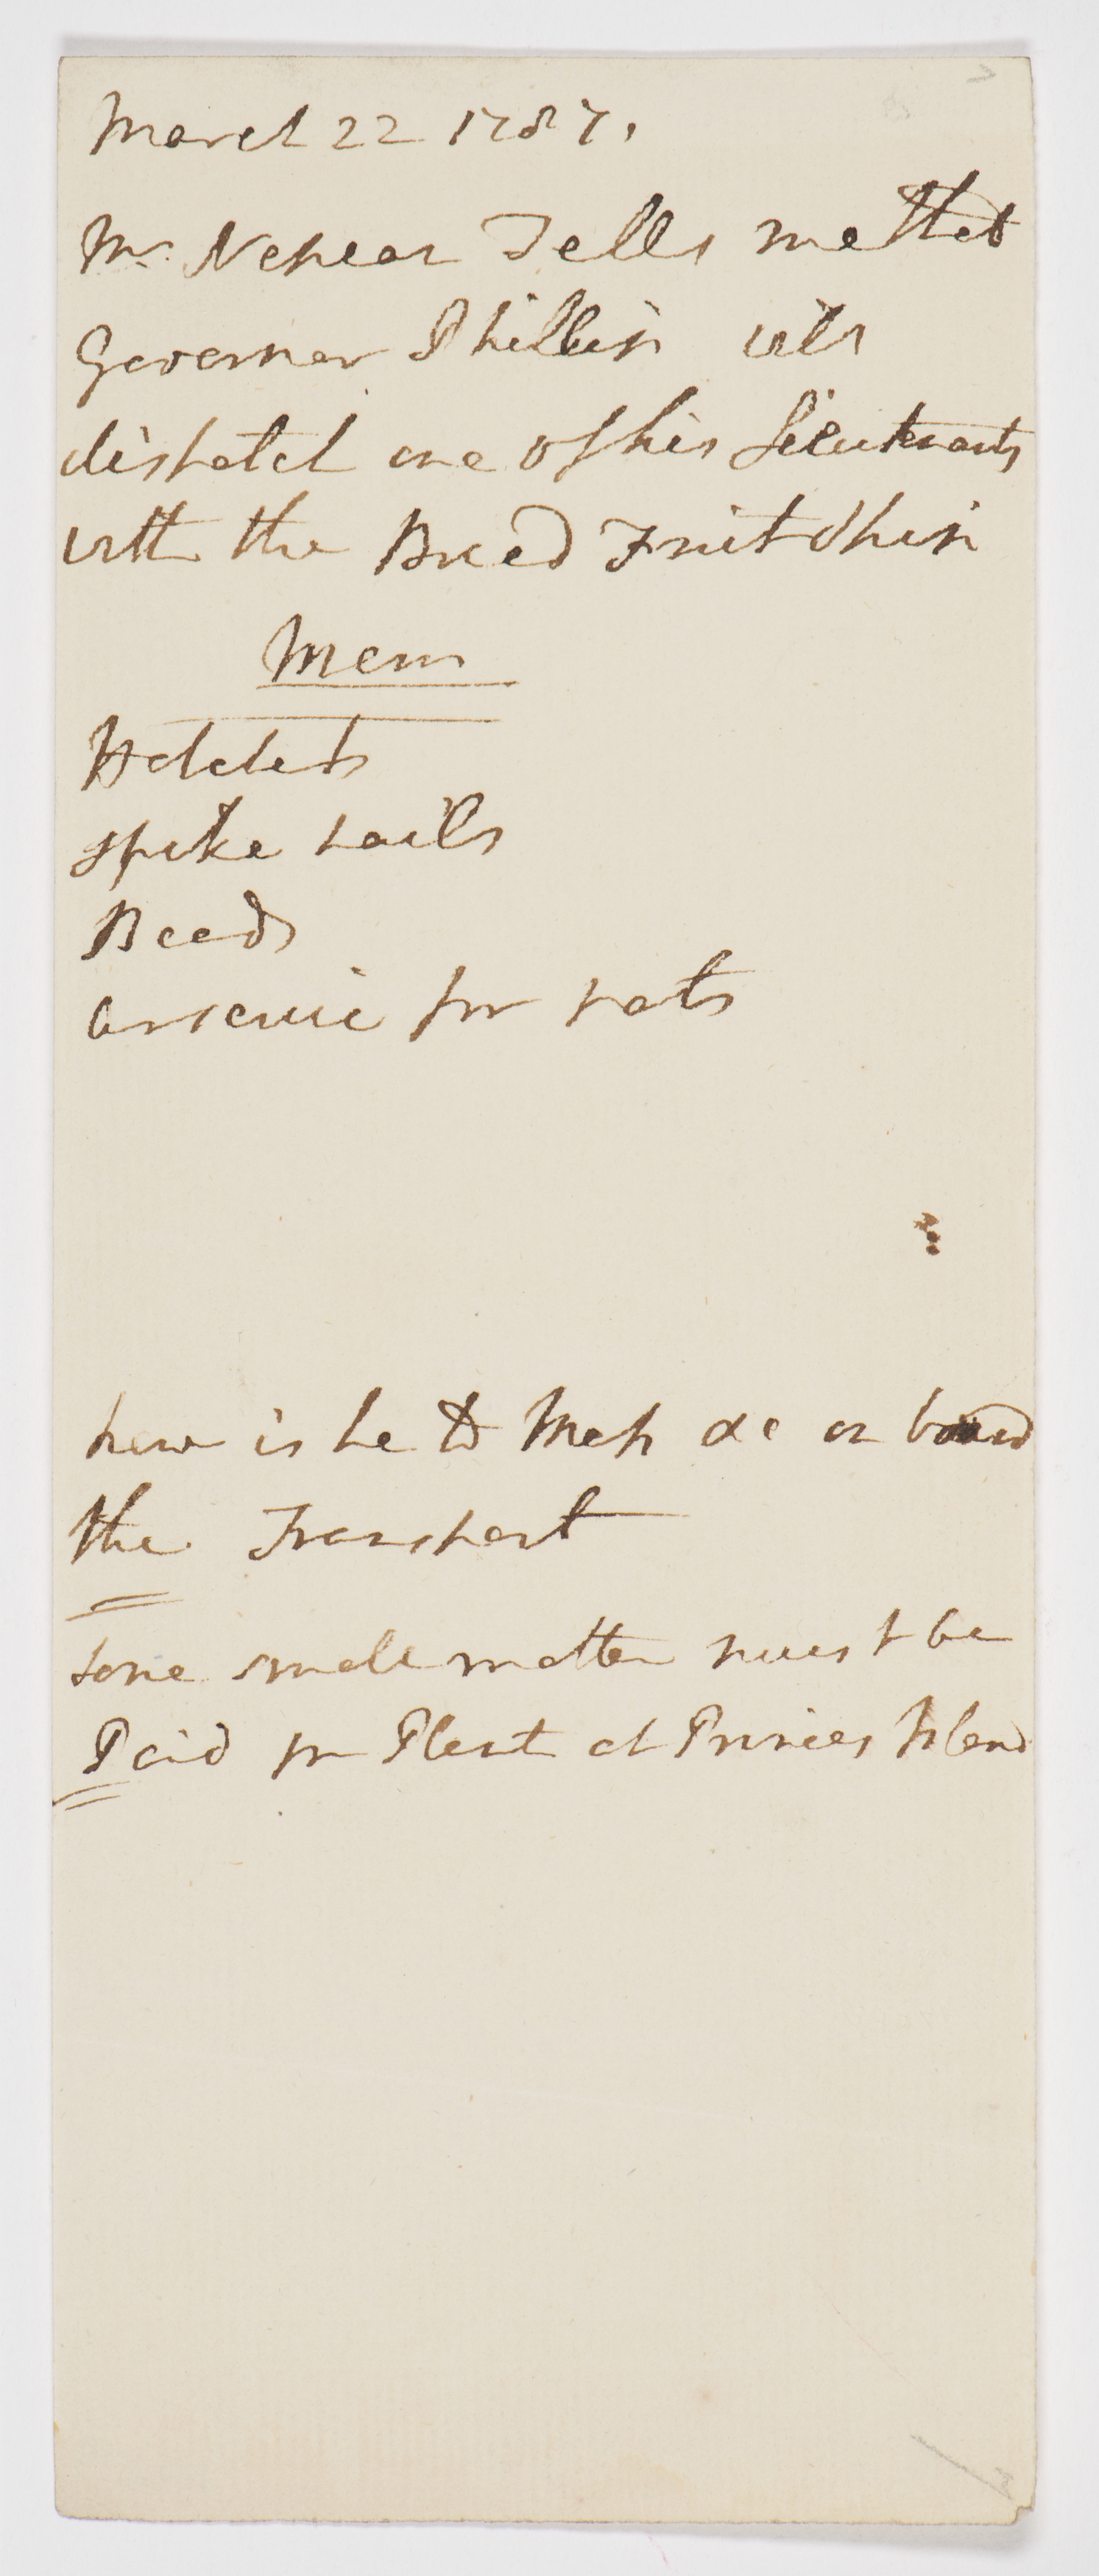 March 22 1787.
Mr. Nepean Tells me that
Governor Phillip will
dispatch one of his Lieutenants
with the Bread Fruit Ship
Mem
Hatchets
spike nails
Beads
arsenic for rats
how is he to Mess &c on board
the Transport
some small matter must be
Paid for Plant at Princes Island